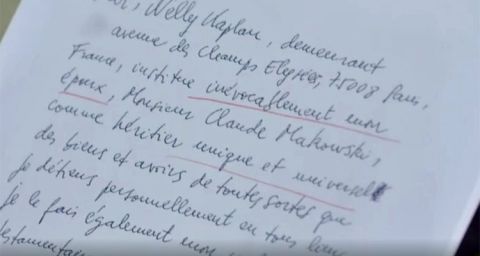 Nelly Kaplan, demeurant
avenue des Champs Elysées, 75008 Paris,
France, institue irrévocablement mon
époux, Monsieur Claude Makowski,
comme héritier unique et universel
des biens et avoirs de toutes sortes que
je détiens personnellement en tous lieux
je le fais également mon
testamentai